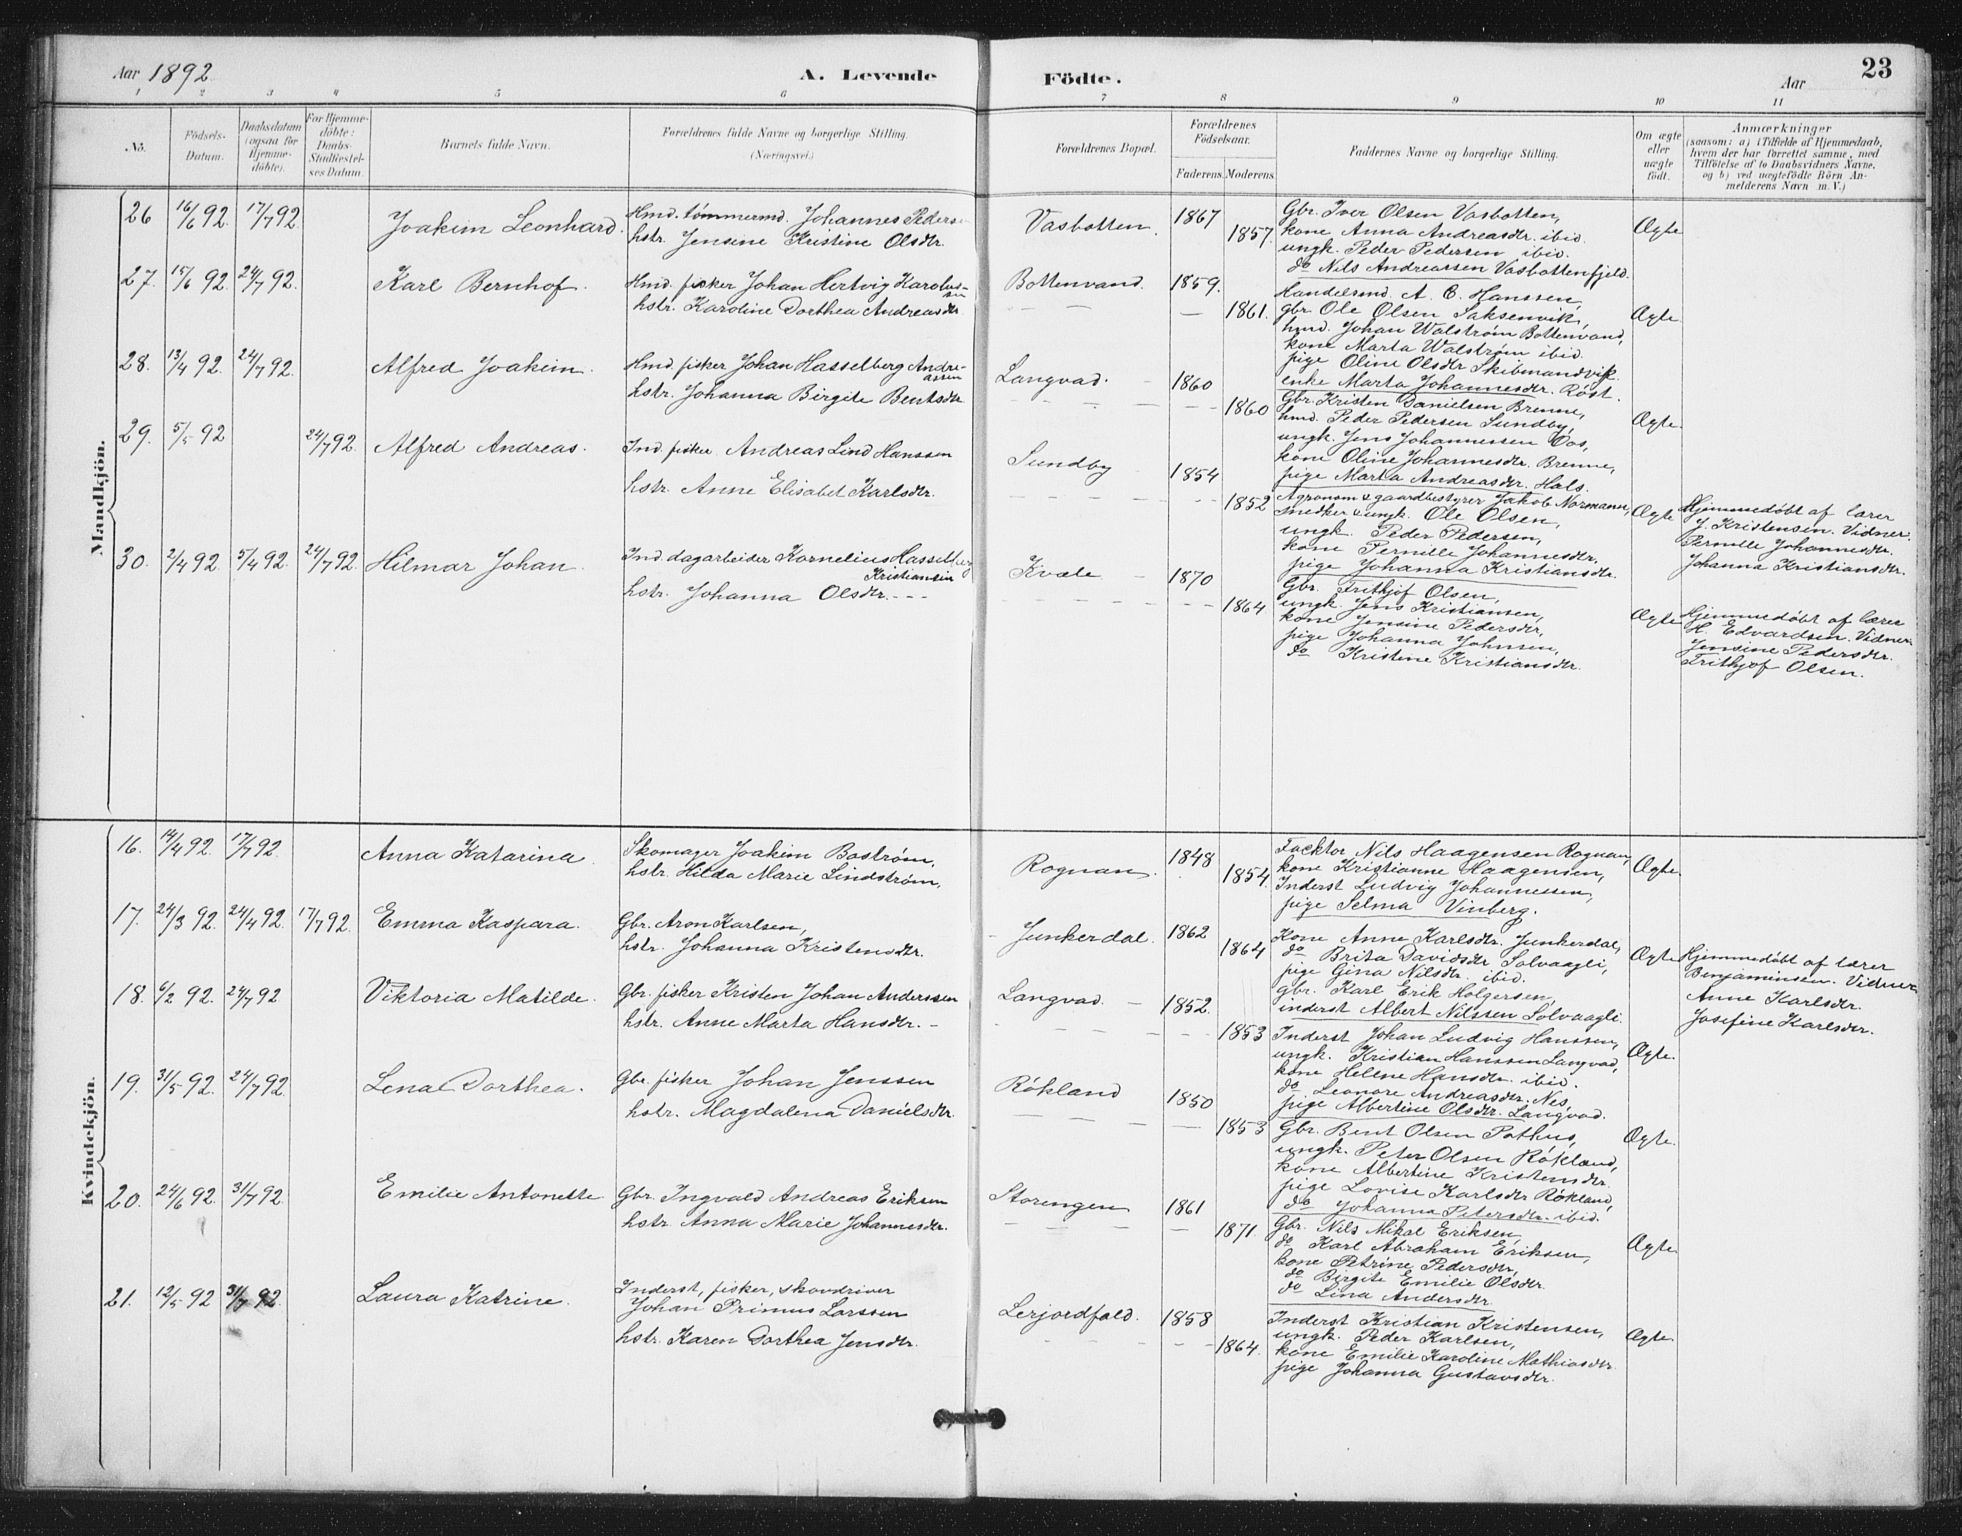 Aar 1892.
A. Levende
Födte.
Aar
23
1 2 3 4 5 6
7 8 9 10 11
No.
Födsels-
Datum.
Daabsdatum
(ogsaa for
Hjemme-
döbte).
For Hjemme-
döbte:
Daabs-
Stadfæstel-
ses Datum.
Barnets fulde Navn.
Forældrenes fulde Navne og borgerlige Stilling.
(Næringsvei.)
Forældrenes Bopæl.
Forældrenes
Födselsaar.
Faderens.
Moderens.
Faddernes Navne og borgerlige Stilling.
Om ægte
eller
uægte
födt.
Anmærkninger
(saasom: a) i Tilfælde af Hjemmedaab,
hvem der har forrettet samme, med
Tilföielse af to Daabsvidners Navne,
og b) ved uægtefödte Börn An-
melderens Navn m. V.)
Mandkjön.
26 16/6 92. 17/7 92. Joakim Leonhard.
Hmd. tømmermd. Johannes Peders
hstr. Jensine Kristine Olsdtr.
Vasbotten. 1867
1857.
Gbr. Iver Olsen Vasbotten,
kone Anna Andreasdtr. ibid.
ungk. Peder Pedersen ibid.
do Nils Andreassen Vasbottenfjeld.
Ægte
27. 15/6 92. 24/7 92. Karl Bernhof.
Hmd. fisker Johan Hertvig Karolus-
sen
hstr. Karoline Dorthea Andreasdtr.
Bottenvand. 1859.
— — — 1861.
Handelsmd. A. C. Hanssen,
gbr. Ole Olsen Saksenvik,
hmd. Johan Walstrøm Bottenvand,
kone Marta Walstrøm ibid.
pige Oline Olsdtr Skibmandvik.
enke Marta Johannesdtr. Røst.
Ægte
28. 13/4 92. 24/7 92. Alfred Joakim.
Hmd. fisker Johan Hasselberg Andre-
assen
hstr. Johanna Birgite Bentsdtr
Langvad. 1860
1860
Gbr. Kristen Danielsen Brenne,
hmd. Peder Pedersen Sundby,
ungk. Jens Johannessen Vos,
kone Oline Johannesdtr. Brenne,
pige Marta Andreasdtr. Hals.
Ægte
29. 5/5 92 24/7 92. Alfred Andreas.
Ind. fisker Andreas Lind Hanssen
hstr. Anne Elisabet Karlsdtr.
Sundby 1854
1852
Agronom & gaardbestyrer Jakob Normann,
snedker & ungk. Ole Olsen,
ungk. Peder Pedersen,
kone Pernille Johannesdtr.
pige Johanna Kristiansdtr.
Ægte
Hjemmedøbt af lærer
J. Kristensen. Vidner.
Pernille Johannesdtr.
Johanna Kristiansdtr.
30. 2/4 92 5/4 92 24/7 92. Hilmar Johan.
Ind. dagarbeider Kornelius Hasselberg
Kristiansen
hstr. Johanna Olsdtr. - - -
Kvæle 1870
1864
Gbr. Frithjof Olsen,
ungk. Jens Kristiansen,
kone Jensine Pedersdtr,
pige Johanna Johnsen,
do Kristine Kristiansdtr.
Ægte
Hjemmedøbt af lærer
H. Edvardsen. Vidner
Jensine Pedersdtr.
Frithjof Olsen.
Kvindekjön.
16. 14/4 92. 17/7 92. Anna Katarina.
Skomager Joakim Boström,
hstr. Hilda Marie Lindström,
Rognan. 1848
1854.
Facktor Nils Haagensen Rognan,
kone Kristianne Haagensen,
Inderst Ludvig Johannessen,
pige Selma Vinberg.
Ægte.
17. 24/3 92. 24/4 92. 17/7 92. Emma Kaspara.
Gbr. Aron Karlsen,
hstr. Johanna Kristensdtr.
Junkerdal. 1862
1864
Kone Anne Karlsdtr. Junkerdal,
do Brita Davidsdtr Solvaagli,
pige Gina Nilsdtr. ibid.
gbr. Karl Erik Holgersen,
inderst Albert Nilssen Solvaagli.
Ægte
Hjemmedøbt af lærer
Benjaminsen. Vidner
Anne Karlsdtr.
Josefine Karlsdtr.
18. 6/2 92. 24/7 92 Viktoria Matilde.
Gbr. fisker Kristen Johan Anderssen
hstr. Anne Marta Hansdtr. -
Langvad. — 1852.
1853
Inderst Johan Ludvig Hanssen,
ungk. Kristian Hanssen Langvad,
kone Hellne Hansdtr. ibid.
do Leonore Andreasdtr. Nes,
pige Albertine Olsdtr. Langvad.
Ægte.
19. 31/5 92. 24/7 92. Lena Dorthea.
Gbr. fisker Johan Jenssen
hstr. Magdalena Danielsdtr.
Røkland 1850
1853
Gbr. Bent Olsen Pothus,
ungk. Peter Olsen Røkland,
kone Albertine Kristensdtr.
pige Lovise Karlsdtr Røkland,
do Johanna Petersdtr. ibid.
Ægte.
20. 24/6 92. 31/7 92. Emilie Antonette
Gbr. Ingvald Andreas Eriksen
hstr. Anna Marie Johannesdtr.
Storengen 1861
1871.
Gbr. Nils Mikal Eriksen,
do Karl Abraham Eriksen,
kone Petrine Pedersdtr,
do Birgite Emilie Olsdtr.
do Lina Andersdtr.
Ægte
21. 12/5 92 31/7 92. Laura Katrine.
Inderst, fisker, skovdriver
Johan Primus Larssen
hstr. Karen Dorthea Jensdtr.
Lerjordfald. 1858
1864.
Inderst Kristian Kristensen,
ungk. Peder Karlsen,
kone Emilie Karoline Mathiasdtr.
pige Johanna Gustavsdtr.
Ægte.